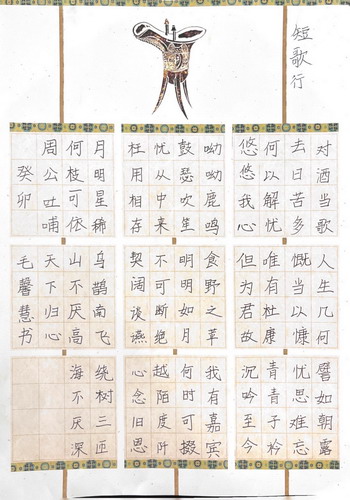 短歌行
对酒当歌人生几何譬如朝露
去日苦多慨当以慷忧思难忘
何以解忧唯有杜康青青子衿
悠悠我心但为君故沉吟至今
呦呦鹿鸣食野之苹我有嘉宾
鼓瑟吹笙明明如月何时可掇
忧从中来不可断绝越陌度阡
枉用相存契阔谈燕心念旧恩
月明星稀乌鹊南飞绕树三匝
何枝可依山不厌高海不厌深
周公吐哺天下归心
癸卯毛馨慧书